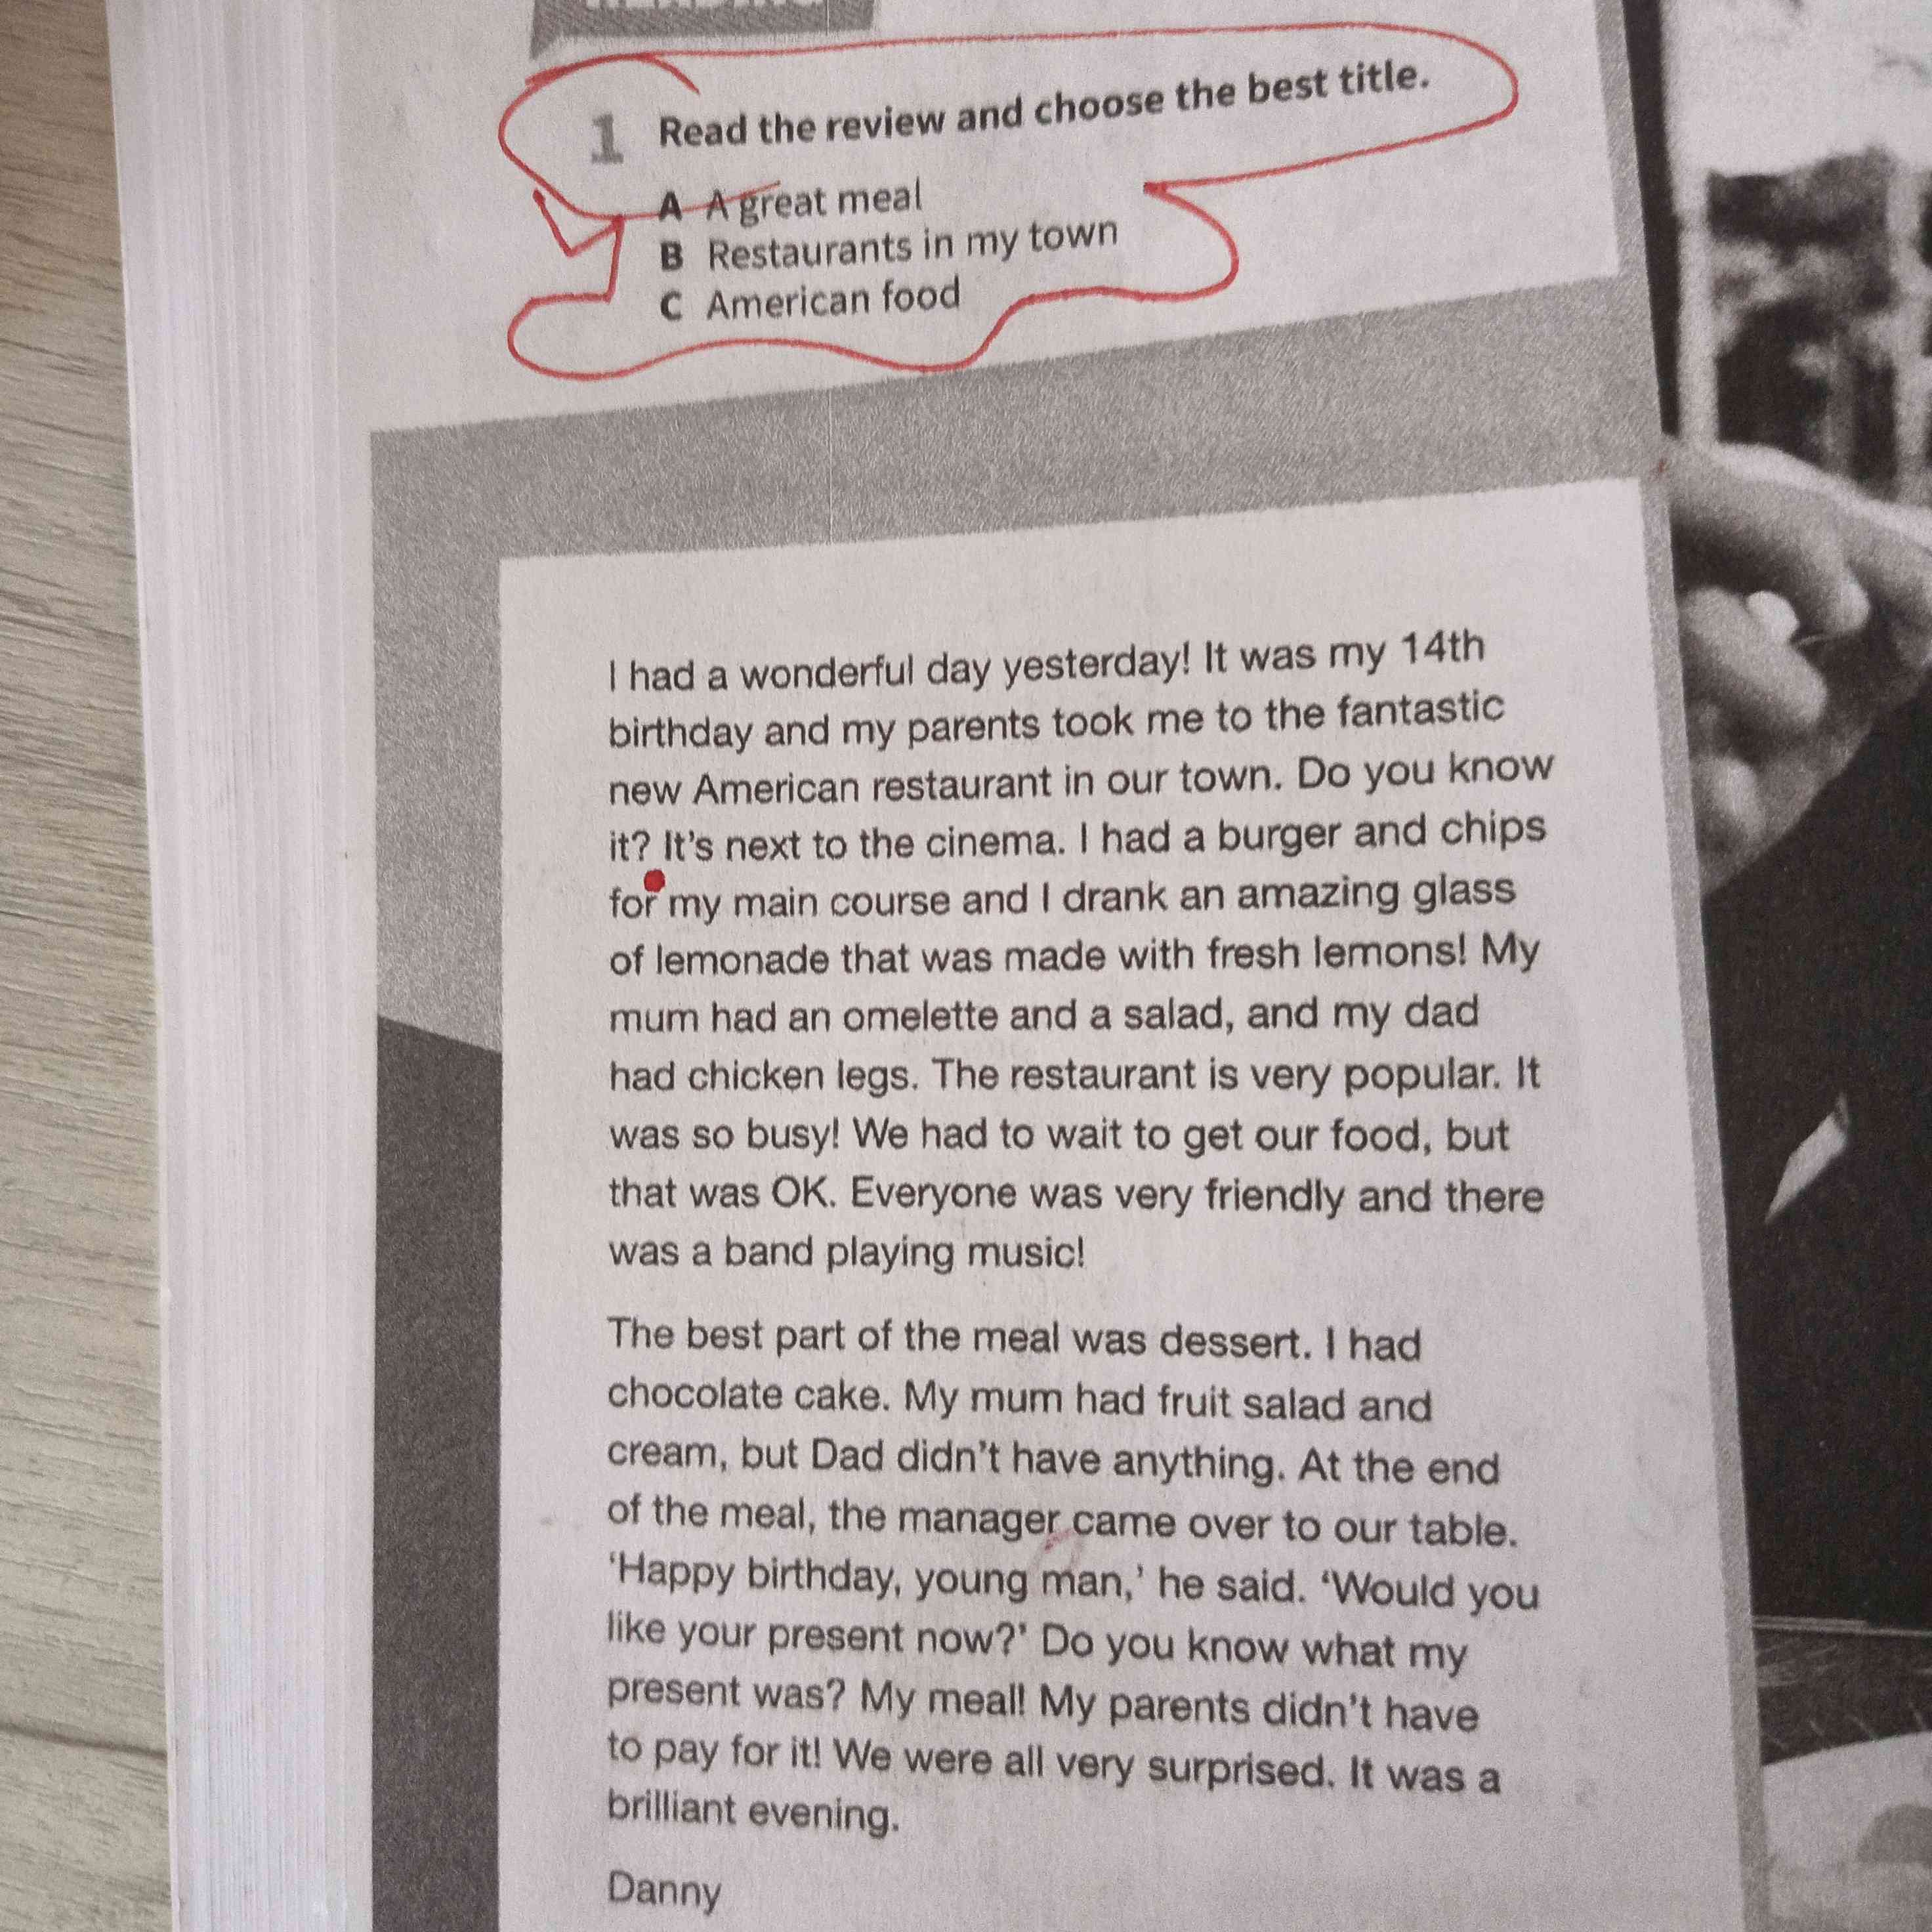 1 Read the review and choose the best title.
A A great meal
B Restaurants in my town
C American food
I had a wonderful day yesterday! It was my 14th
birthday and my parents took me to the fantastic
new American restaurant in our town. Do you know
it? It's next to the cinema. I had a burger and chips
for my main course and I drank an amazing glass
of lemonade that was made with fresh lemons! My
mum had an omelette and a salad, and my dad
had chicken legs. The restaurant is very popular. It
was so busy! We had to wait to get our food, but
that was OK. Everyone was very friendly and there
was a band playing music!
The best part of the meal was dessert. I had
chocolate cake. My mum had fruit salad and
cream, but Dad didn't have anything. At the end
of the meal, the manager came over to our table.
‘Happy birthday, young man,’ he said. ‘Would you
like your present now?’ Do you know what my
present was? My meal! My parents didn't have
to pay for it! We were all very surprised. It was a
brilliant evening.
Danny